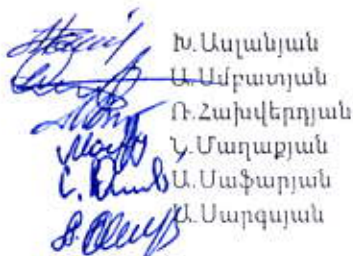 Խ.Ասլանյան
Ա.Սմբատյան
Ռ.Հախվերդյան
Ն.Մաղաքյան
Ա.Սաֆարյան
Ա.Սարգսյան